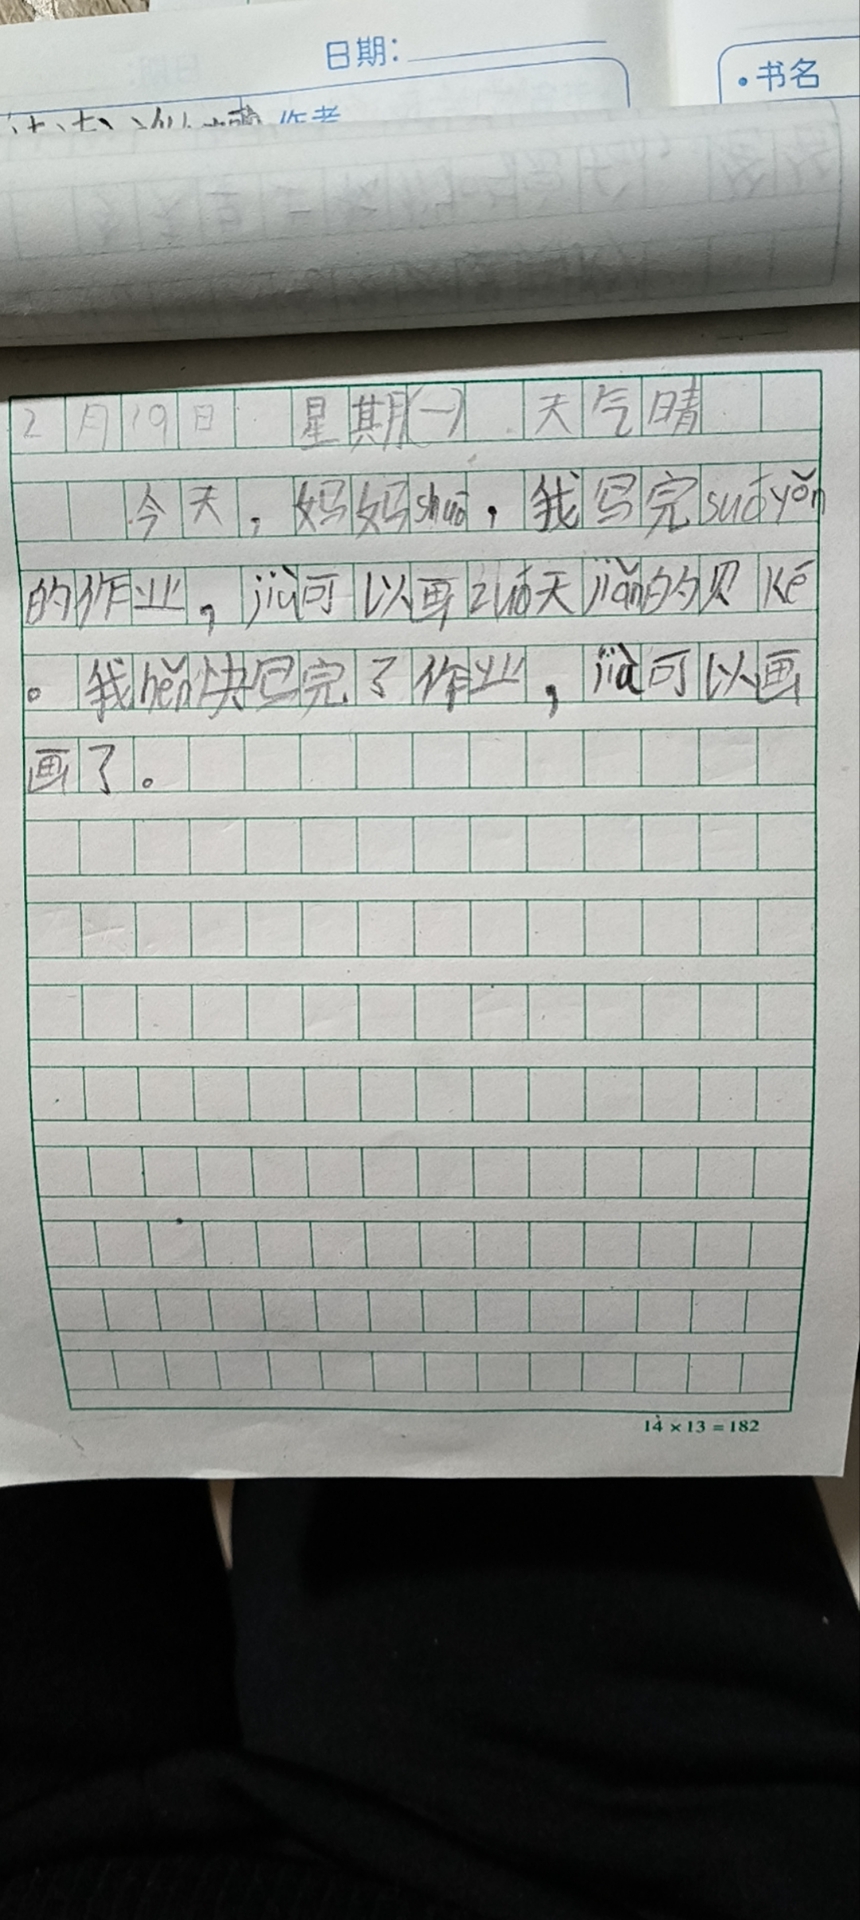 日期：
•书名
作者
2月19日 星期(一) 天气晴
今天，妈妈shuō，我写完suǒyǒn
的作业，jiù可以画zuó天jiǎn的贝ké
。我hěn快写完了作业，jiù可以画
画了。
14×13=182